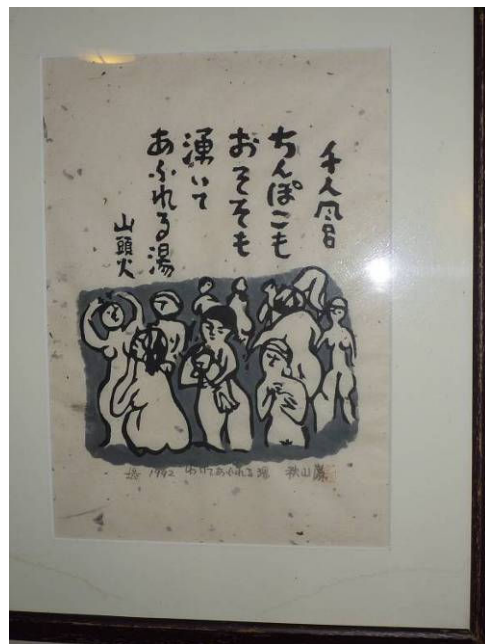 千人風呂
ちんぽこも
おそそも
湧いて
あふれる湯
山頭火
1992 わいてあふれる湯 秋山巌